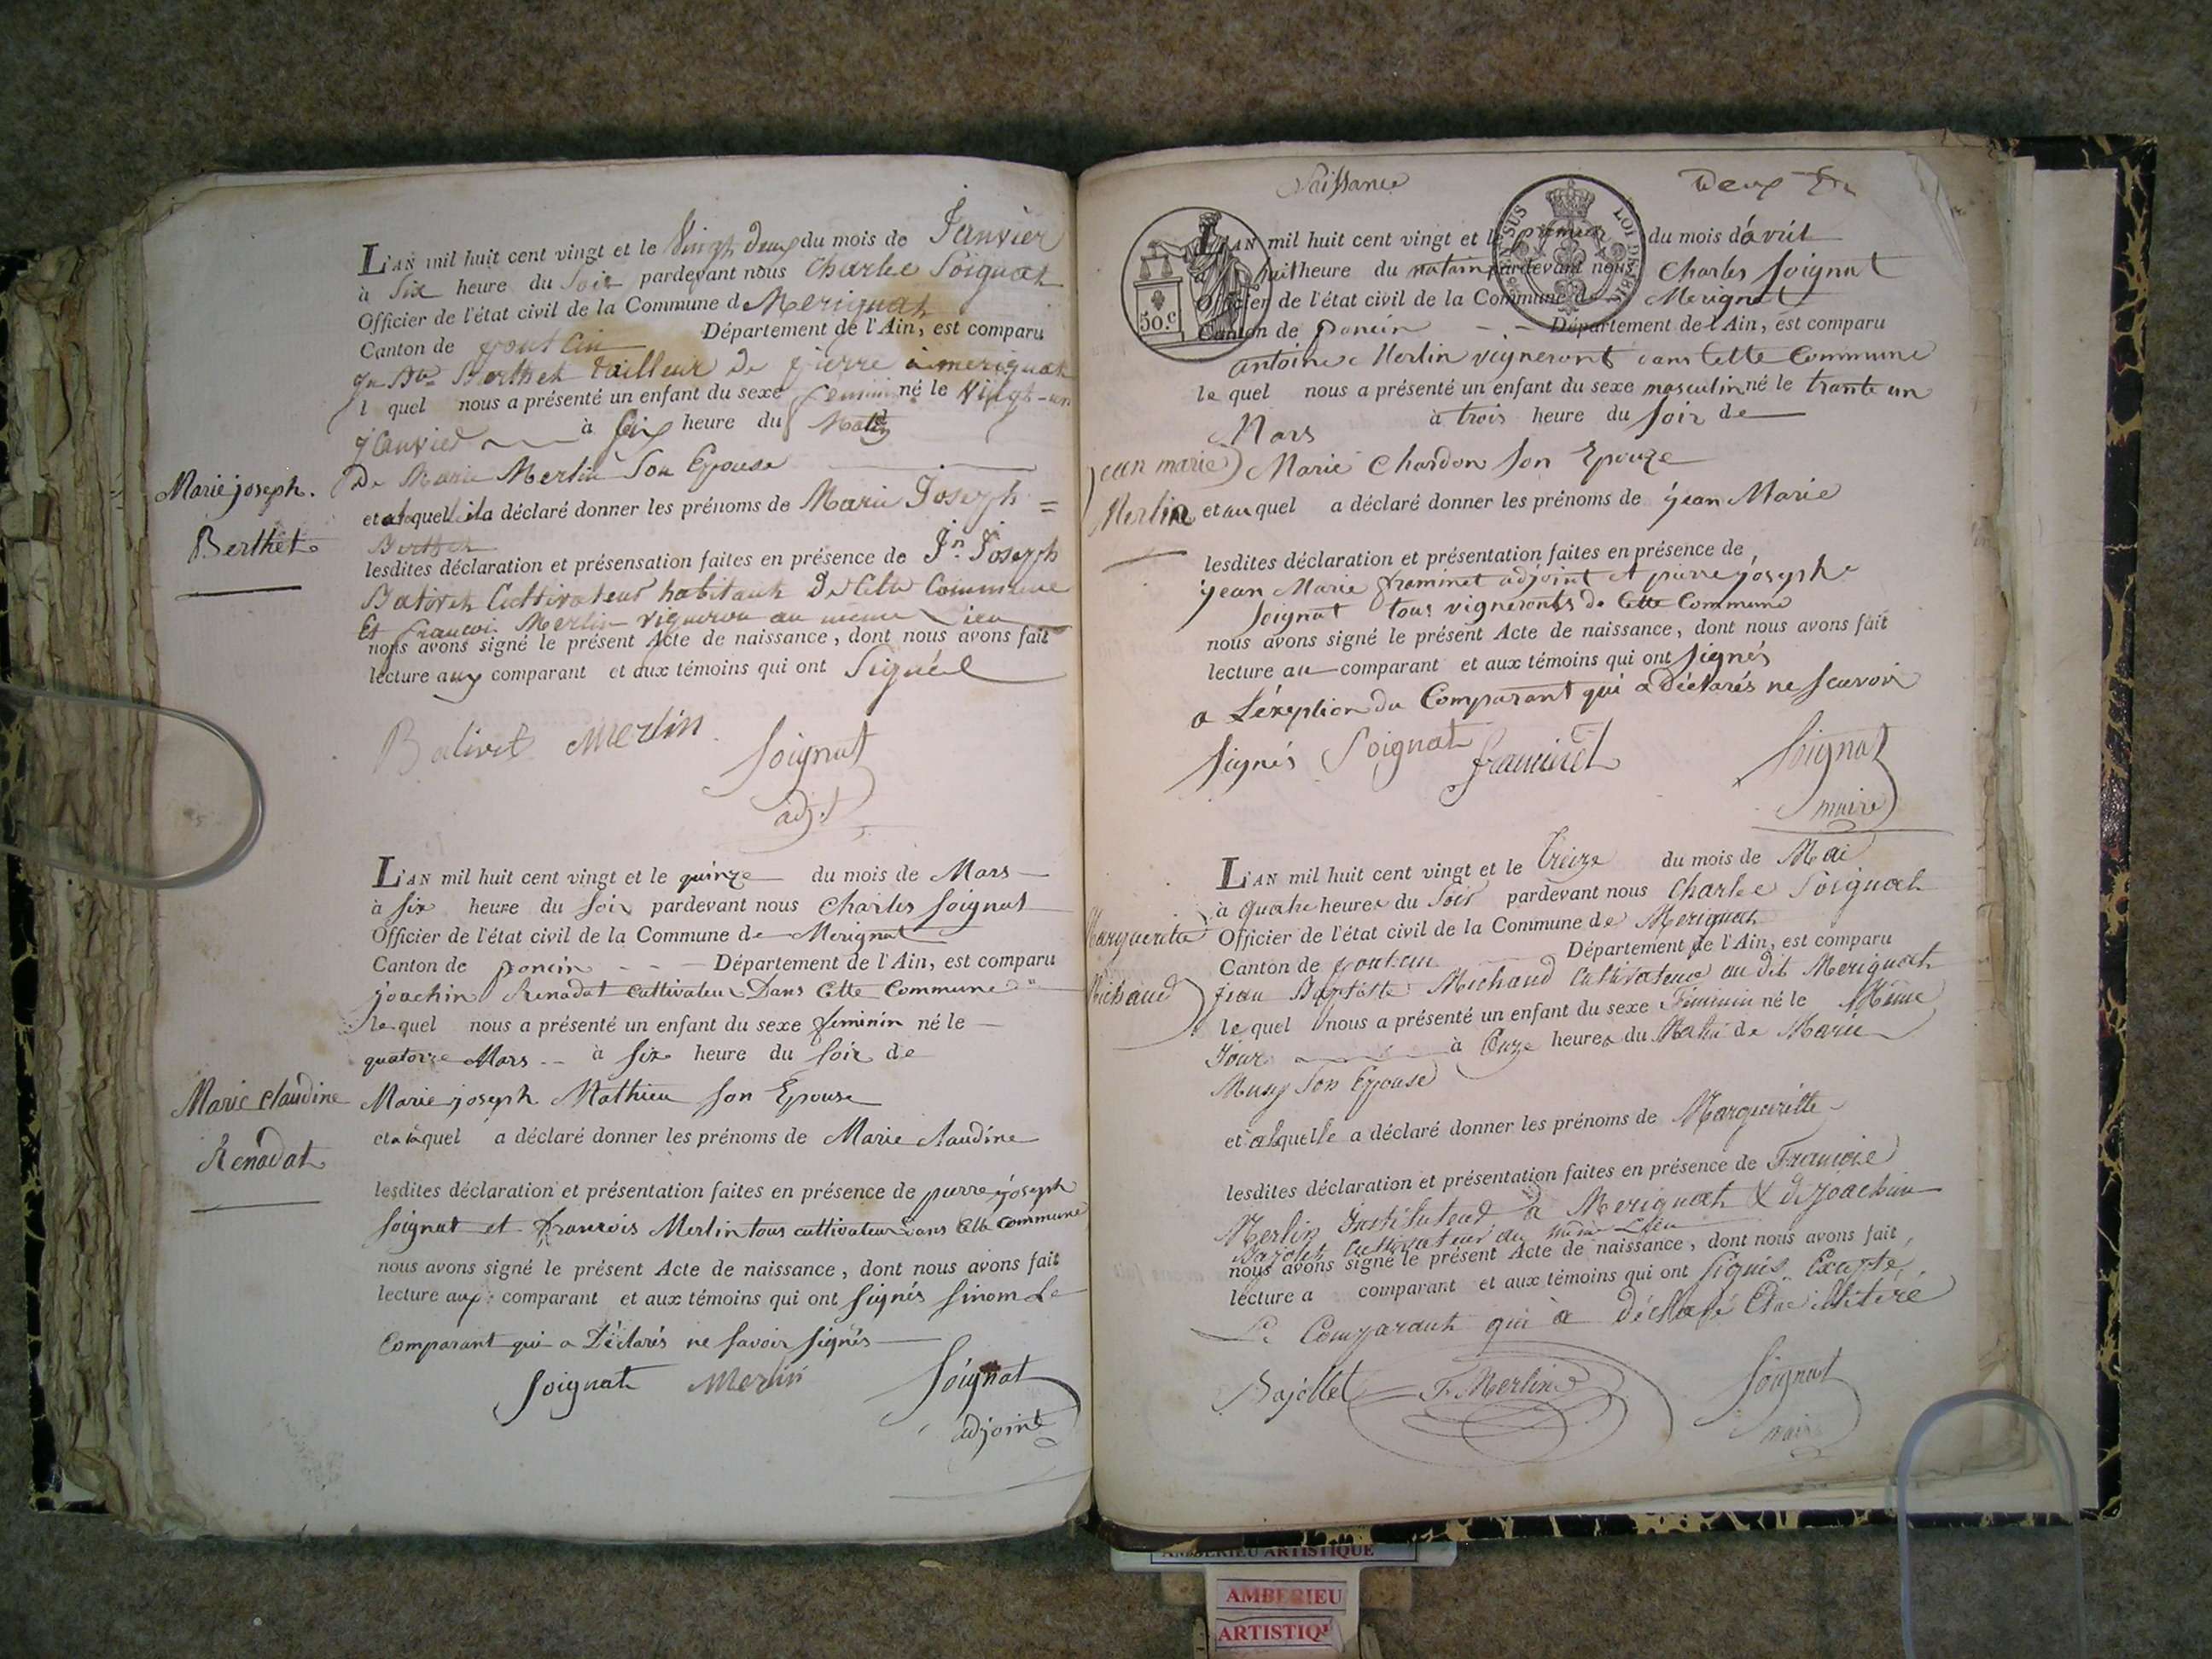 L'AN mil huit cent vingt et le Vingt Deux du mois de Janvier
à Six heure du Soir pardevant nous Charle Soignat
Officier de l'état civil de la Commune de Merignat
Canton de pont Ain Département de l'Ain, est comparu
Jn Bte Berthet tailleur De pierre à merignat
l quel nous a présenté un enfant du sexe feminin né le Vingt-un
janvier à six heure du Matin
De Marie Merlin Son Epouse
Marie joseph.
et a laquelle il a déclaré donner les prénoms de Marie Joseph =
Berthet
Berthet
lesdites déclaration et présensation faites en présence de Jn. Joseph
Cultivateur habitant De Cette Commune
Et francoi Merlin vigneron au meme Lieu
nous avons signé le présent Acte de naissance, dont nous avons fait
lecture aux comparant et aux témoins qui ont Signée
Balivet Merlin
Soignat
adjt
L'AN mil huit cent vingt et le quinze du mois de Mars
à six heure du soir pardevant nous Charles Soignat
Officier de l'état civil de la Commune de Merignat
Canton de poncin Département de l'Ain, est comparu
joachin Renadat cultivateur Dans Cette Commune
le quel nous a présenté un enfant du sexe feminin né le
quatorze Mars à six heure du soir de
Marie claudine
Marie joseph Mathieu son Epouse
et a laquel a déclaré donner les prénoms de Marie claudine
Renadat
lesdites déclaration et présentation faites en présence de pierre joseph
soignat et francois Merlin tous cultivateur Dans Cette Commune
nous avons signé le présent Acte de naissance, dont nous avons fait
lecture aux comparant et aux témoins qui ont signés sinom Le
Comparant qui a Déclarés ne savoir signés
Soignat Merlin Soignat
adjoint
Naissance Deux
L'AN mil huit cent vingt et le premier du mois d'avril
à huit heure du matain pardevant nous Charles Soignat
Officier de l'état civil de la Commune de Merignat
Canton de poncin Département de l'Ain, est comparu
50.c
LOI DE 1816
antoine Merlin vigneront dans Cette Commune
le quel nous a présenté un enfant du sexe masculin né le trante un
Mars à trois heure du soir de
jean marie
Marie Chardon son Epouze
Merlin
et au quel a déclaré donner les prénoms de jean Marie
lesdites déclaration et présentation faites en présence de
jean Marie framinet adjoint et pierre joseph
soignat tous vigneronts de Cette Commune
nous avons signé le présent Acte de naissance, dont nous avons fait
lecture au comparant et aux témoins qui ont signés
a L'exeption du Comparant qui a Déclarés ne scavoir
signés Soignat framinet Soignat
maire
L'AN mil huit cent vingt et le treize du mois de Mai
à quatre heures du Soir pardevant nous Charle Soignat
Marguerite
Officier de l'état civil de la Commune de Merignat
Canton de Département de l'Ain, est comparu
Michaud
jean Baptiste Michaud Cultivateur au dit Merignat
le quel nous a présenté un enfant du sexe Féminin né le Même
Jour à Onze heures du Matin de Marie
Musy Son Epouse
et a laquelle a déclaré donner les prénoms de Margueritte
lesdites déclaration et présentation faites en présence de Francoise
Merlin Instituteur à Merignat & de joachim
Bajollet Cultivateur au même Lieu
nous avons signé le présent Acte de naissance, dont nous avons fait
lecture a comparant et aux témoins qui ont signés Excepté
Le Comparant qui à déclaré Etre illitéré
Bajollet F. Merlin Soignat
maire
AMBERIEU ARTISTIQUE
AMBERIEU
ARTISTIQU